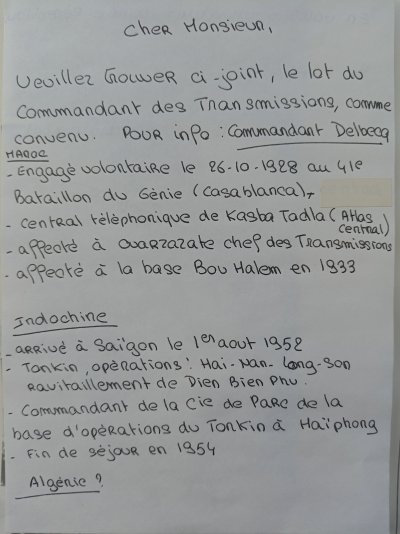 Cher Monsieur,
Veuillez trouver ci-joint, le lot du
Commandant des Transmissions, comme
convenu. Pour info : Commandant Delbecq
MAROC
- Engagé volontaire le 26-10-1928 au 41e
Bataillon du Génie (Casablanca),
- central téléphonique de Kasba Tadla (Atlas central)
- affecté à Ouarzazate chef des Transmissions
- affecté à la base Bou Halem en 1933
Indochine
- arrivé à Saïgon le 1er aout 1952
- Tonkin, opérations : Hai-Nan-Long-Son
ravitaillement de Dien Bien Phu.
- Commandant de la Cie de Parc de la
base d'opérations du Tonkin à Haïphong
- Fin de séjour en 1954
Algérie ?